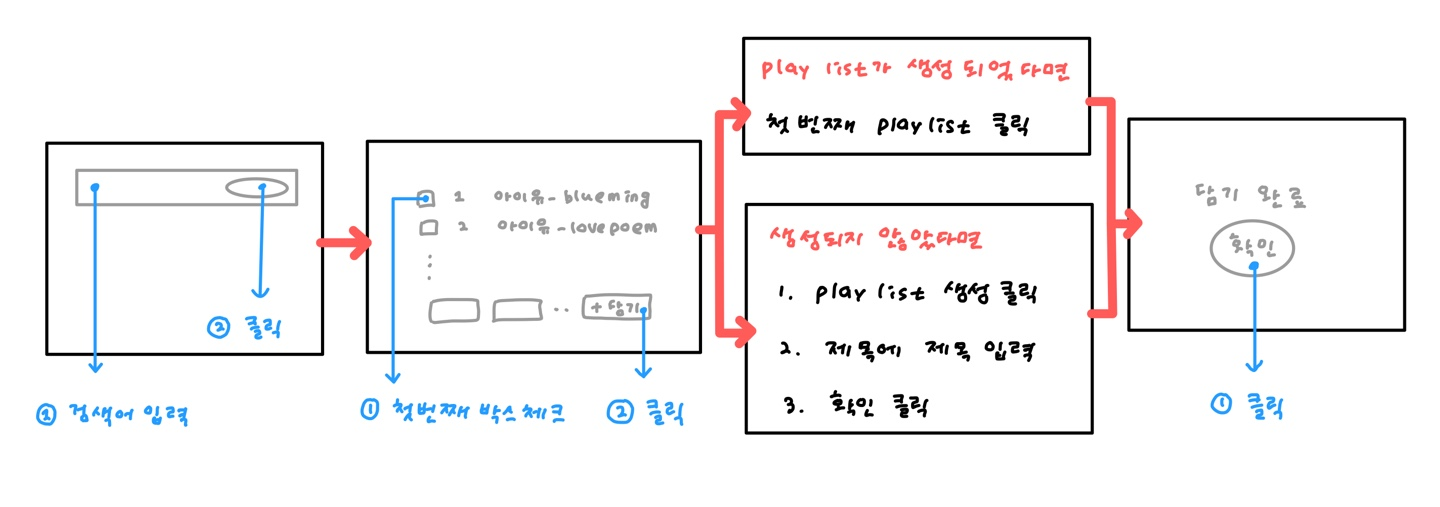 ② 클릭
① 검색어 입력
1 아이유-blueming
2 아이유-lovepoem
+ 담기
① 첫번째 박스체크
② 클릭
play list가 생성 되었다면
첫 번째 playlist 클릭
생성되지 않았다면
1. play list 생성 클릭
2. 제목에 제목 입력
3. 확인 클릭
담기 완료
확인
① 클릭